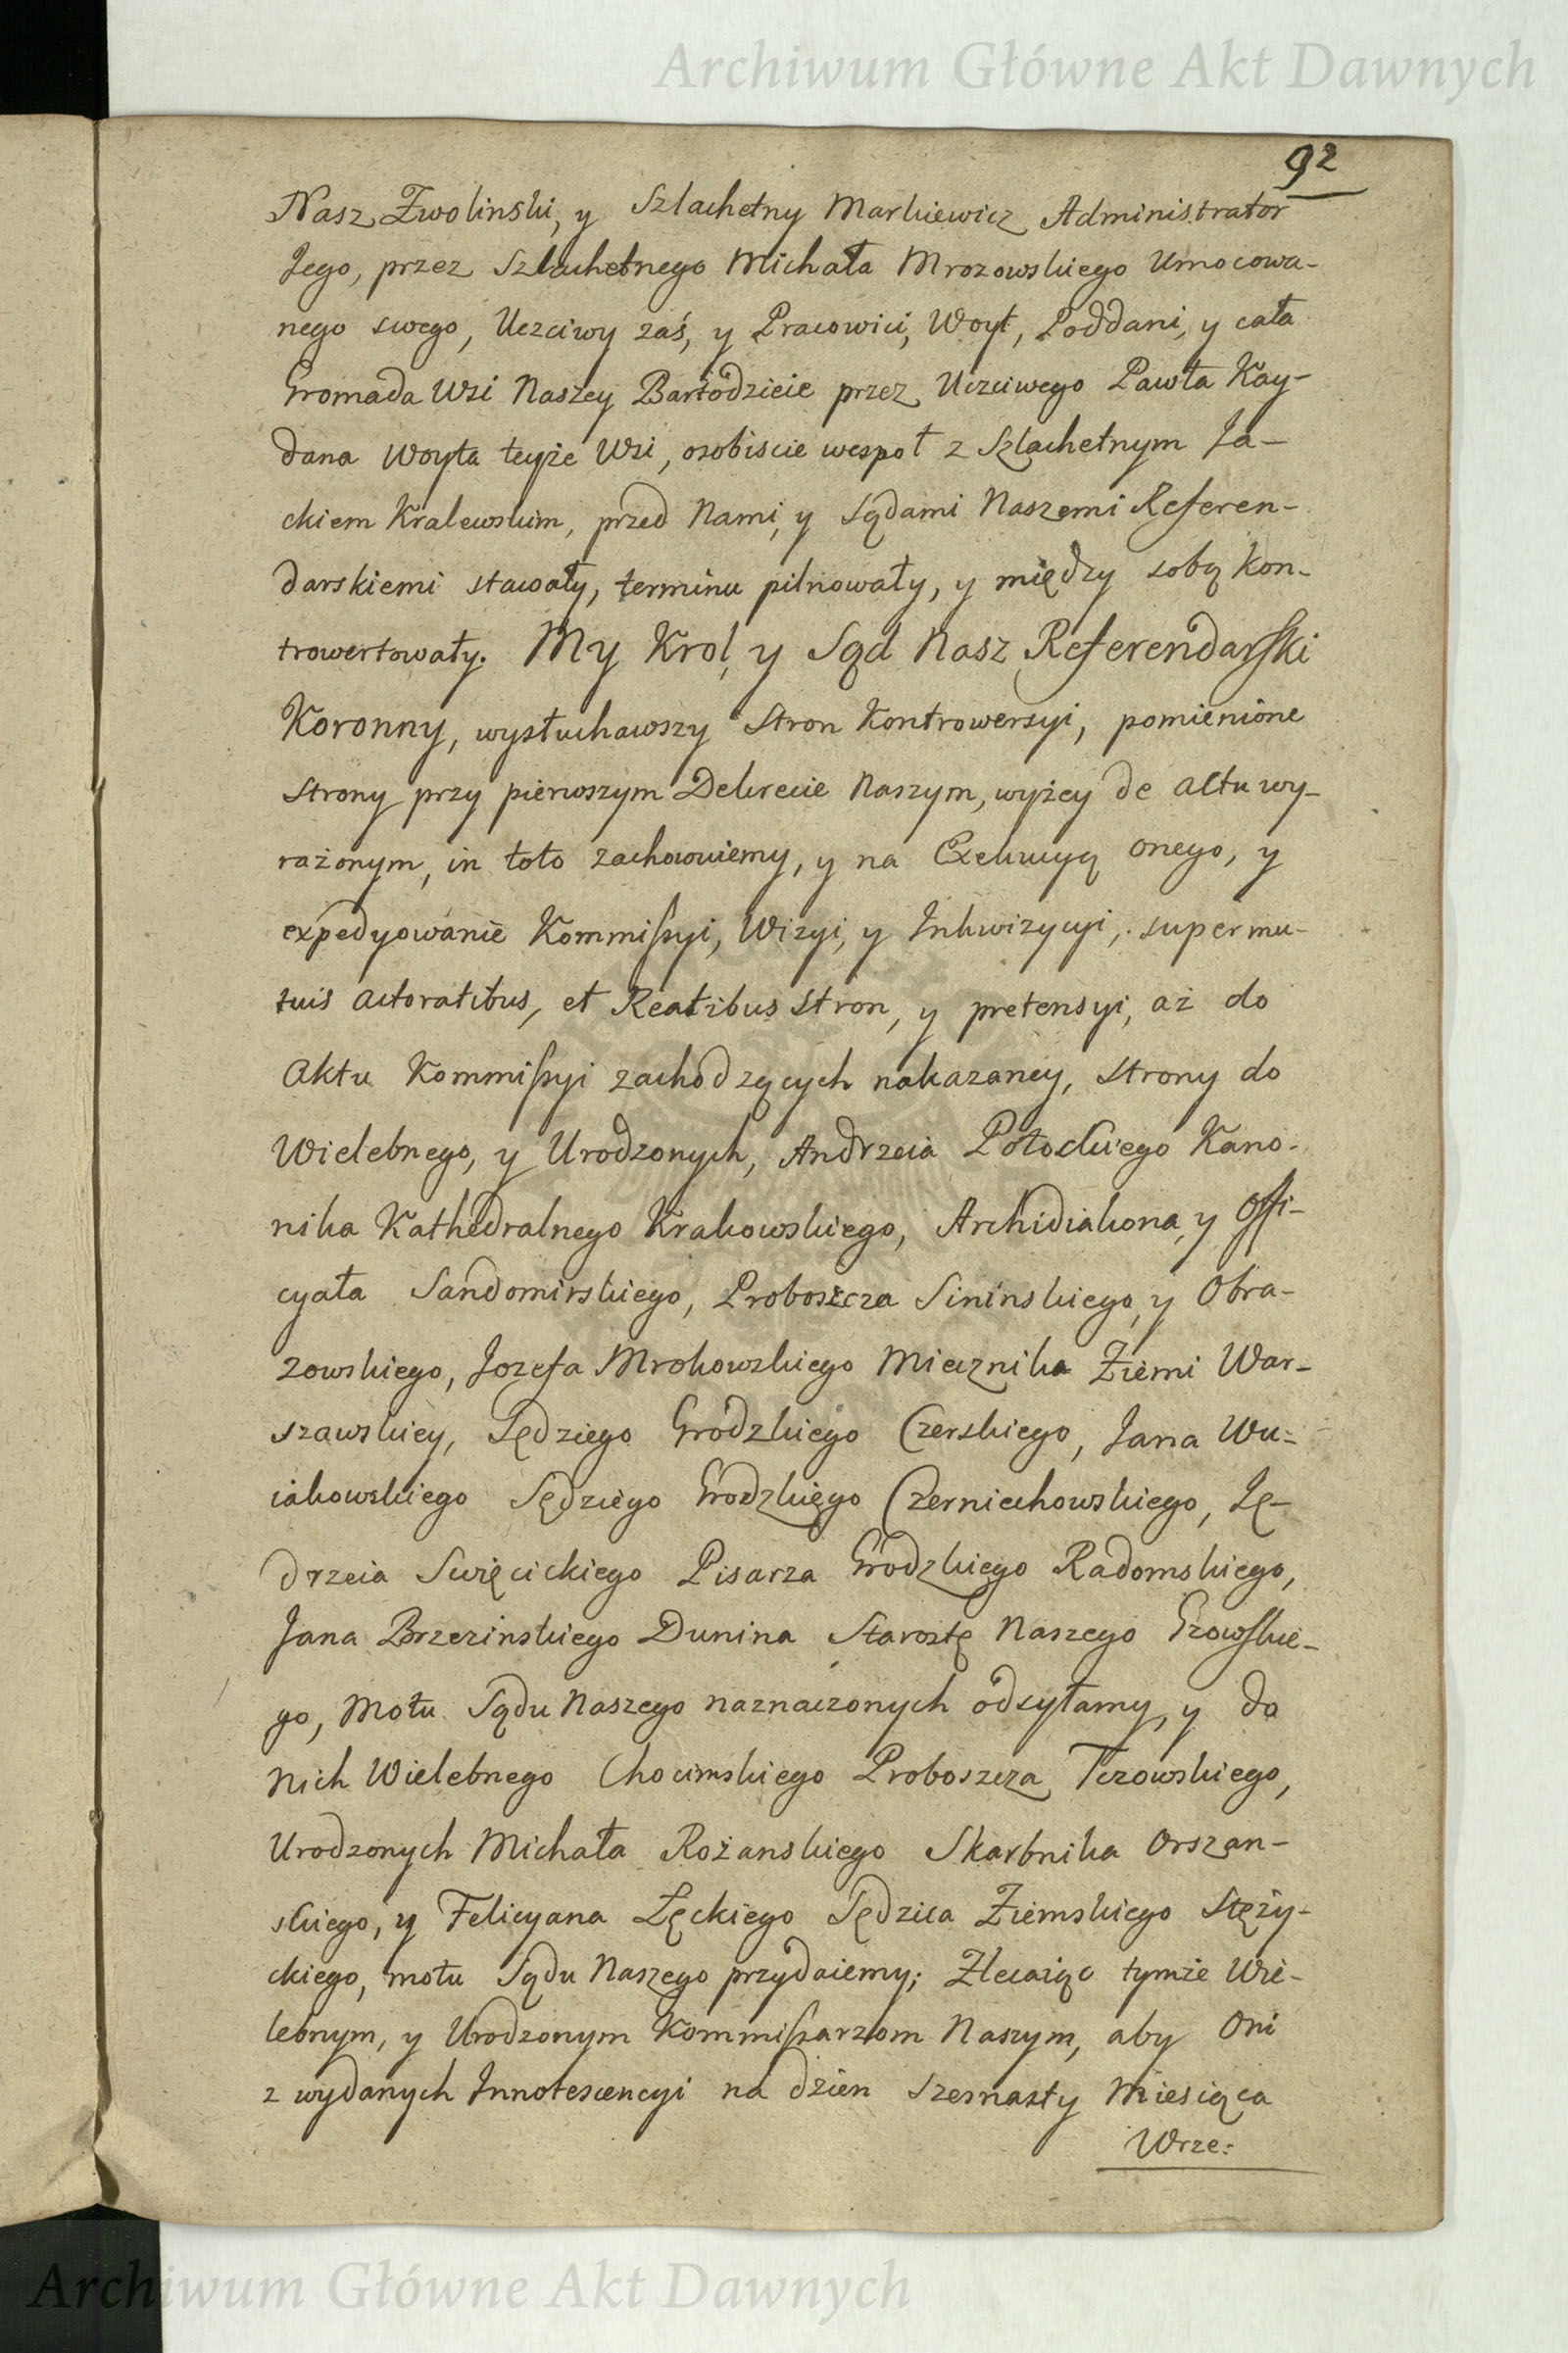 Archiwum Główne Akt Dawnych
92
Nasz Zwolinski, y Szlachetny Markiewicz Administrator
Jego, przez Szlachetnego Michała Mrozowskiego Umocowa-
nego swego, Uczciwy zaś, y Pracowici, Woyt, Poddani, y cała
Gromada Wsi Naszey Bartodzieie przez Uczciwego Pawła Kay-
dana Woyta teyże Wsi, osobiscie wespoł z Szlachetnym Ja-
ckiem Kralewskim, przed Nami, y Sądami Naszemi Referen-
darskiemi stawały, terminu pilnowały, y między sobą kon-
trowertowały. My Krol, y Sąd Nasz Referendarski
Koronny, wysłuchawszy Stron Kontrowersyi, pomienione
Strony przy pierwszym Dekrecie Naszym, wyżey de actu wy-
rażonym, in toto zachowuiemy, y na Exekucyą onego, y
expedyowanie Kommissyi, Wizyi, y Inkwizycyi, super mu-
tuis actoratibus, et Reatibus Stron, y pretensyi, aż do
Aktu Kommissyi zachodzących nakazaney, Strony do
Wielebnego, y Urodzonych, Andrzeia Potockiego Kano-
nika Kathedralnego Krakowskiego, Archidiakona, y Offi-
cyała Sandomirskiego, Proboszcza Sininskiego, y Obra-
zowskiego, Jozefa Mrokowskiego Miecznika Ziemi War-
szawskiey, Sędziego Grodzkiego Czerskiego, Jana Wu-
iakowskiego Sędziego Grodzkiego Czerniechowskiego, Ję-
drzeia Swięcickiego Pisarza Grodzkiego Radomskiego,
Jana Brzezinskiego Dunina Starostę Naszego Gzowskie-
go, Motu Sądu Naszego naznaczonych odsyłamy, y do
Nich Wielebnego Chocimskiego Proboszcza Tczowskiego,
Urodzonych Michała Rożanskiego Skarbnika Orszan-
skiego, y Felicyana Łęckiego Sędzica Ziemskiego Stęży-
ckiego, motu Sądu Naszego przydaiemy; Zlecaiąc tymże Wie-
lebnym, y Urodzonym Kommissarzom Naszym, aby Oni
z wydanych Innotescencyi na dzien Szesnasty Miesiąca
Wrze:
Archiwum Główne Akt Dawnych